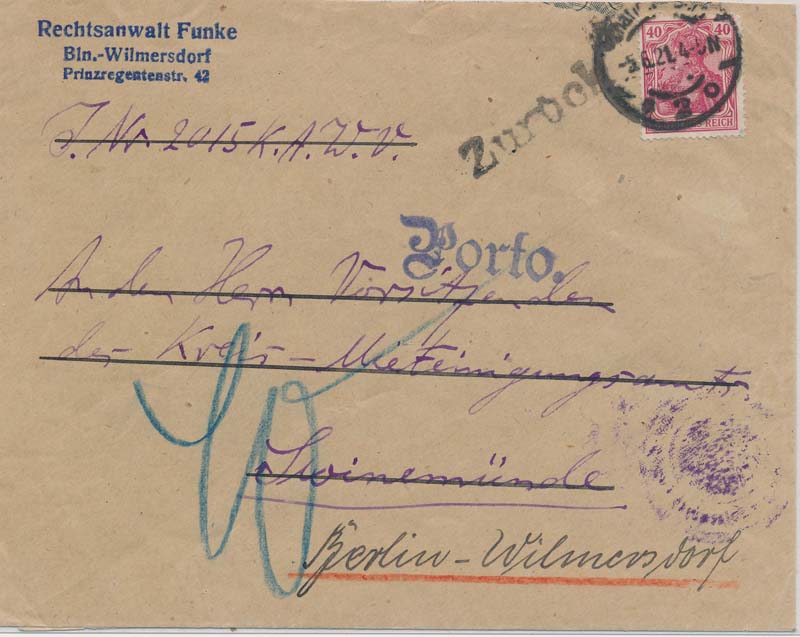 Rechtsanwalt Funke
Bln.-Wilmersdorf
Prinzregentenstr. 42
40 40
REICH
-5.6.21. 4-5N
Zurück
J. Nr. 2015 K.A.W.V.
Porto.
An den Herrn Vorsitzenden
des Kreis-Mieteinigungsamts
Swinemünde
40
Berlin-Wilmersdorf